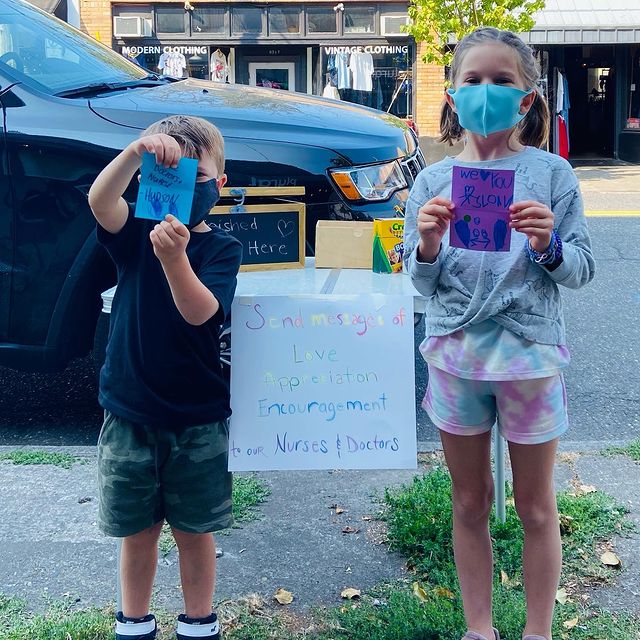 MODERN CLOTHING
VINTAGE CLOTHING
NURSES
HUDSON
we ♥ You
ished
Here
Send messages of
Love
Appreciation
Encouragement
to our Nurses & Doctors